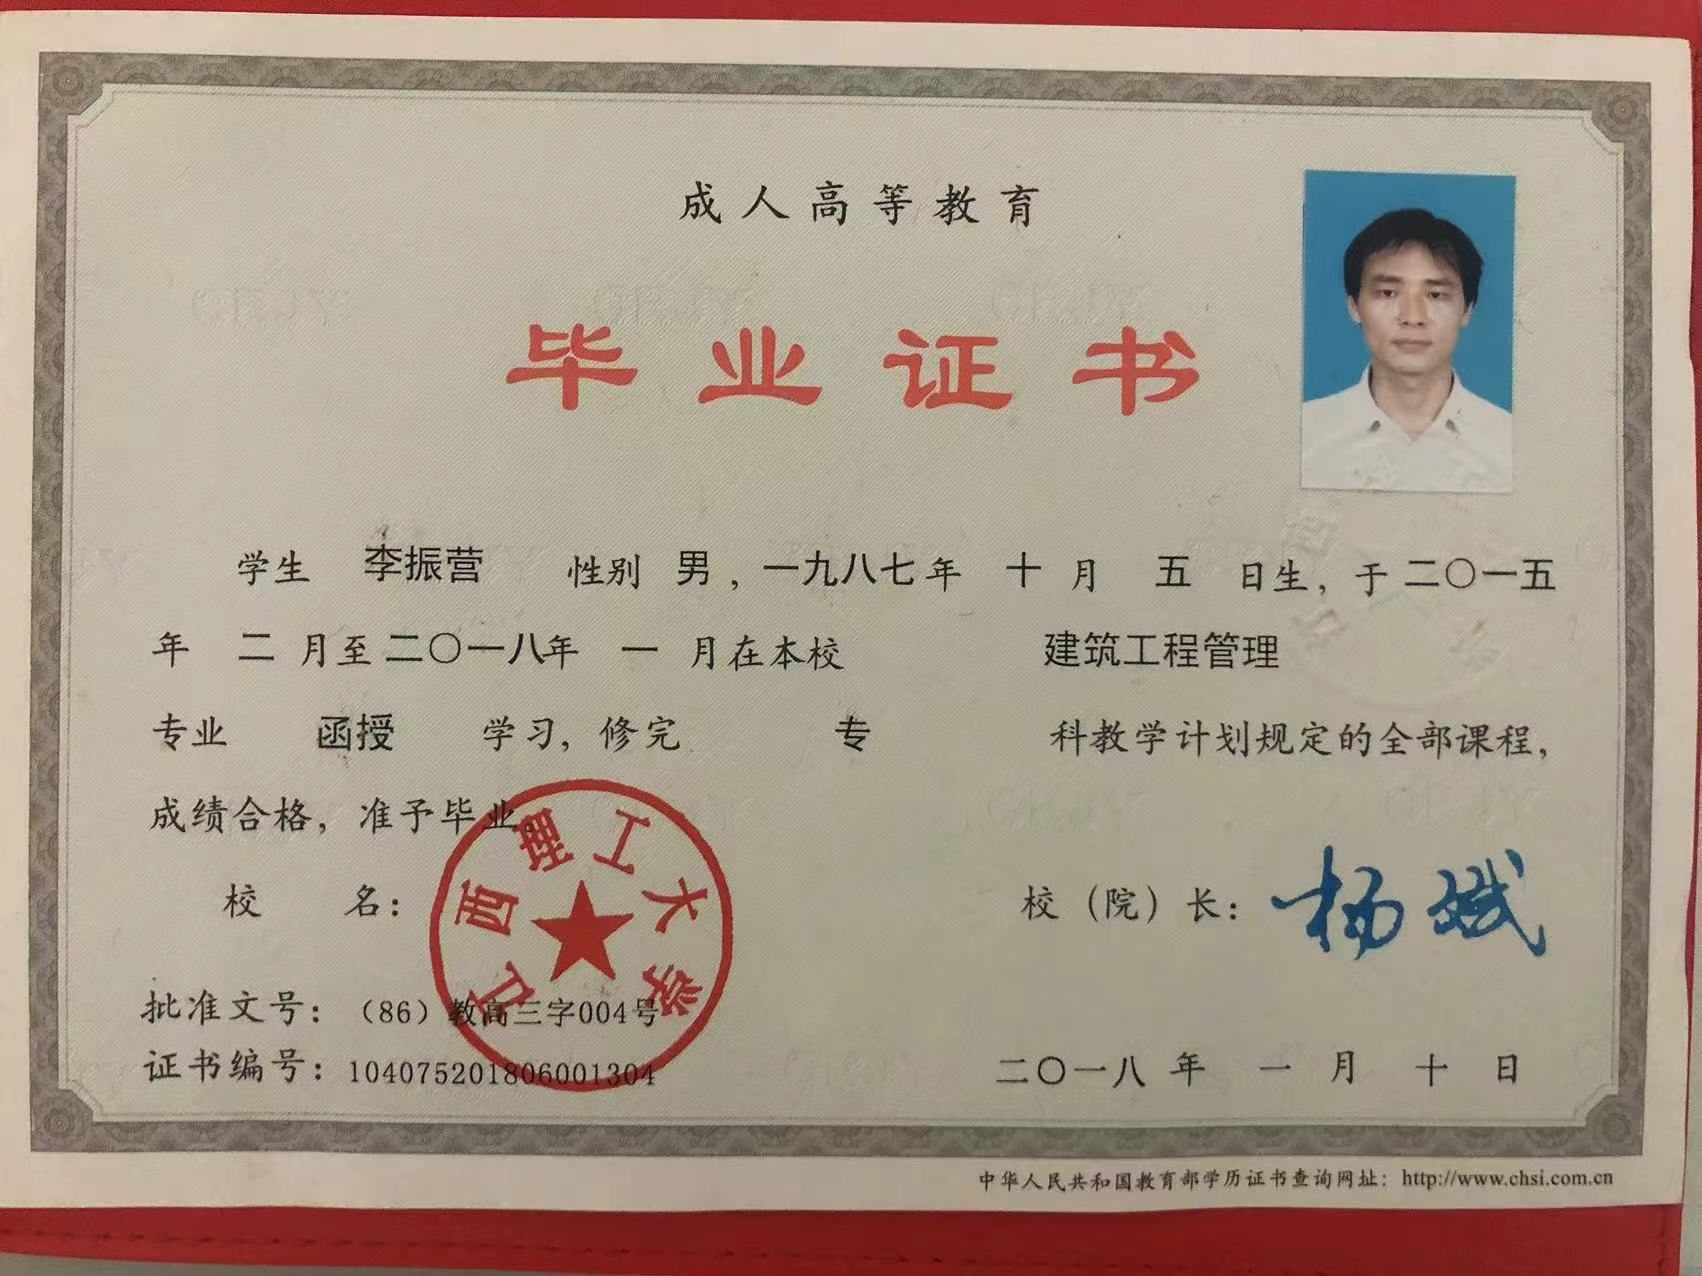 成人高等教育
毕业证书
学生 李振营 性别 男，一九八七年 十 月 五 日生，于二〇一五
年 二 月至二〇一八年 一 月在本校 建筑工程管理
专业 函授 学习，修完 专 科教学计划规定的全部课程，
成绩合格，准予毕业。
江西理工大学
校 名：
校（院）长：杨斌
批准文号：（86）教高三字004号
证书编号：104075201806001304
二〇一八 年 一 月 十 日
中华人民共和国教育部学历证书查询网址：http://www.chsi.com.cn